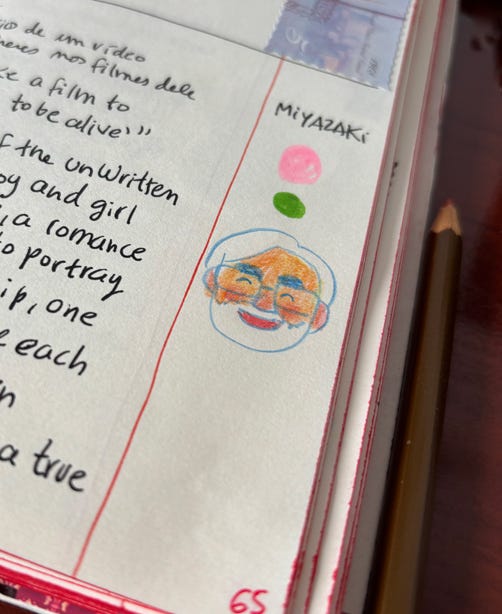 de um vídeo
nos filmes dele
a film to
to be alive'"
the unwritten
and girl
, a romance
portray
ip, one
each
a true
MiYAZAKi
65